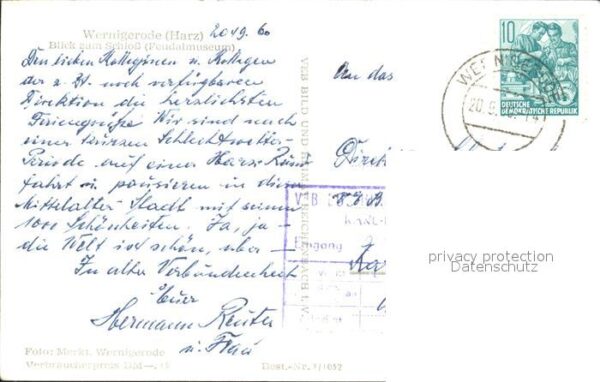 Wernigerode (Harz) 20/9.60
Blick zum Schloß (Feudalmuseum)
Den lieben Kolleginnen u. Kollegen
der z. Zt. noch verfügbaren
Direktion die herzlichsten
Feriengrüße. Wir sind nach
einer kurzen Schlechtwetter-
Periode auf einer Harz-Rund
fahrt u. pausieren in dieser
mittelalter Stadt mit seinen
1000 Schönheiten. Ja, ja-
die Welt ist schön, aber —
In alter Verbundenheit
Euer
Hermann Reuter
u. Frau
Foto: Merkt, Wernigerode
Verbraucherpreis DM —,
Best.-Nr.
VEB BILD UND HEIMAT REICHENBACH I. V.
An das
VEB
Eingang
10
DEUTSCHE
DEMOKRATISCHE REPUBLIK
WERNIGERODE
20.9.
privacy protection
Datenschutz